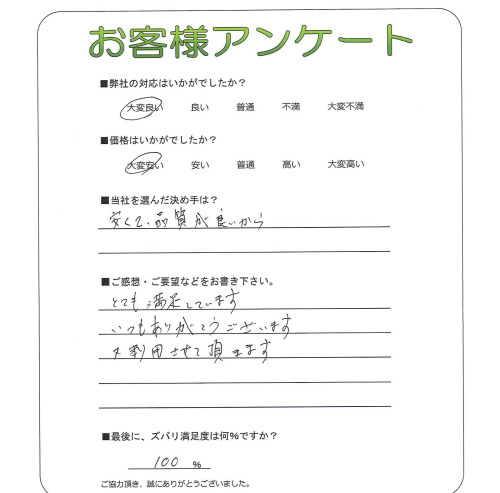 お客様アンケート
■弊社の対応はいかがでしたか？
大変良い 良い 普通 不満 大変不満
■価格はいかがでしたか？
大変安い 安い 普通 高い 大変高い
■当社を選んだ決め手は？
安くて、品質が良いから
■ご感想・ご要望などをお書き下さい。
とても満足しています
いつもありがとうございます
又利用させて頂きます
■最後に、ズバリ満足度は何%ですか？
100 %
ご協力頂き、誠にありがとうございました。